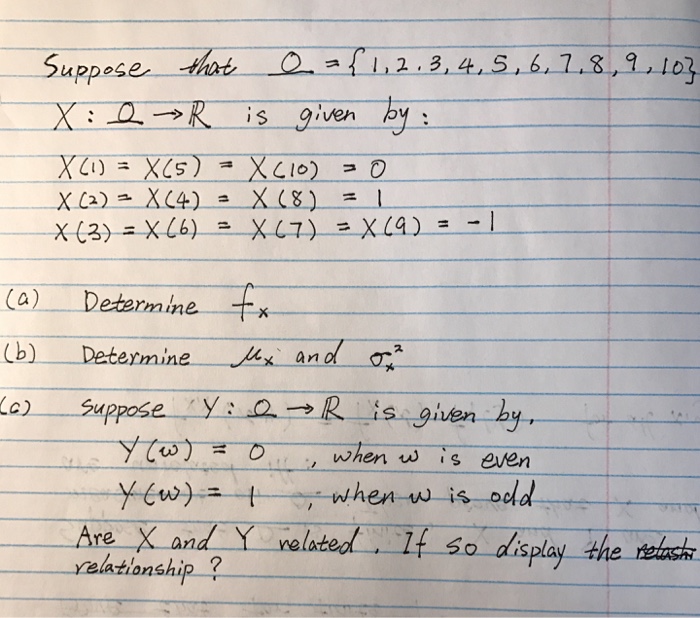 Suppose that Ω = { 1, 2. 3, 4, 5, 6, 7, 8, 9, 10}
X : Ω → R is given by :
X(1) = X(5) = X(10) = 0
X(2) = X(4) = X(8) = 1
X(3) = X(6) = X(7) = X(9) = -1
(a) Determine fx
(b) Determine μx and σx²
(c) Suppose Y : Ω → R is given by,
Y(w) = 0 , when w is even
Y(w) = 1 , when w is odd
Are X and Y related. If so display the
relationship ?